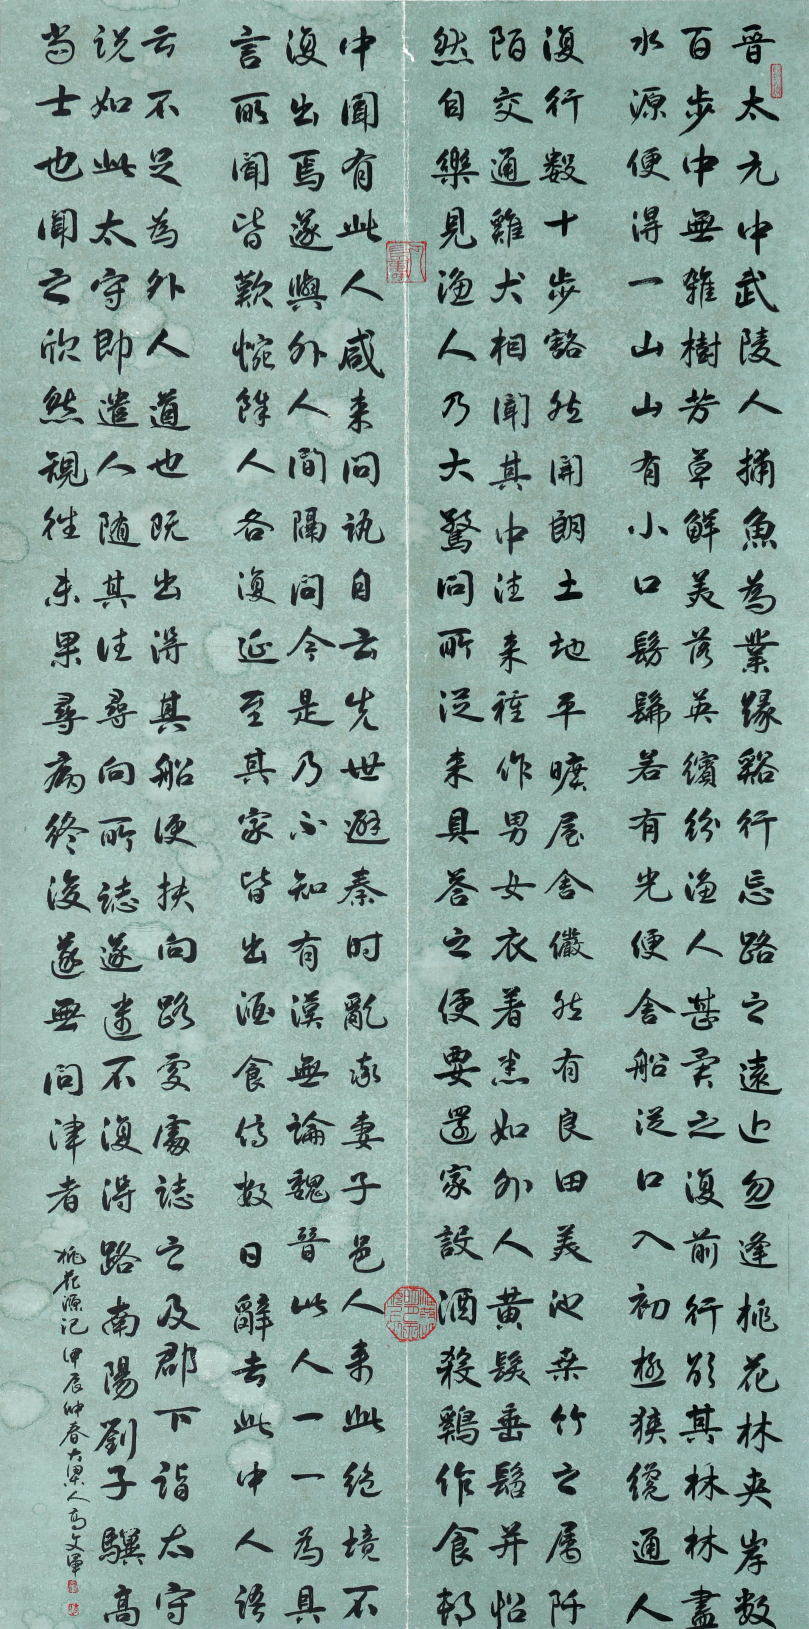 晋太元中武陵人捕魚為業緣谿行忘路之遠近忽逢桃花林夹岸数
百步中無雜樹芳草鮮美落英繽紛渔人甚異之復前行欲其林林盡
水源便得一山山有小口髣髴若有光便舍船從口入初極狭纔通人
復行数十步豁然開朗土地平曠屋舍儼然有良田美池桑竹之属阡
陌交通雞犬相聞其中往来種作男女衣著悉如外人黄髮垂髫并怡
然自樂見渔人乃大驚問所從来具答之便要還家設酒殺鷄作食邨
中聞有此人咸来問訊自云先世避秦时亂率妻子邑人来此绝境不
復出焉遂與外人間隔問今是乃不知有漢無論魏晉此人一一為具
言所聞皆歎惋餘人各復延至其家皆出酒食停数日辭去此中人語
云不足為外人道也既出得其船便扶向路處處誌之及郡下詣太守
说如此太守即遣人随其往尋向所誌遂迷不復得路南陽劉子驥高
尚士也聞之欣然規往未果尋病终後遂無問津者
桃花源记甲辰仲春大梁人高文軍